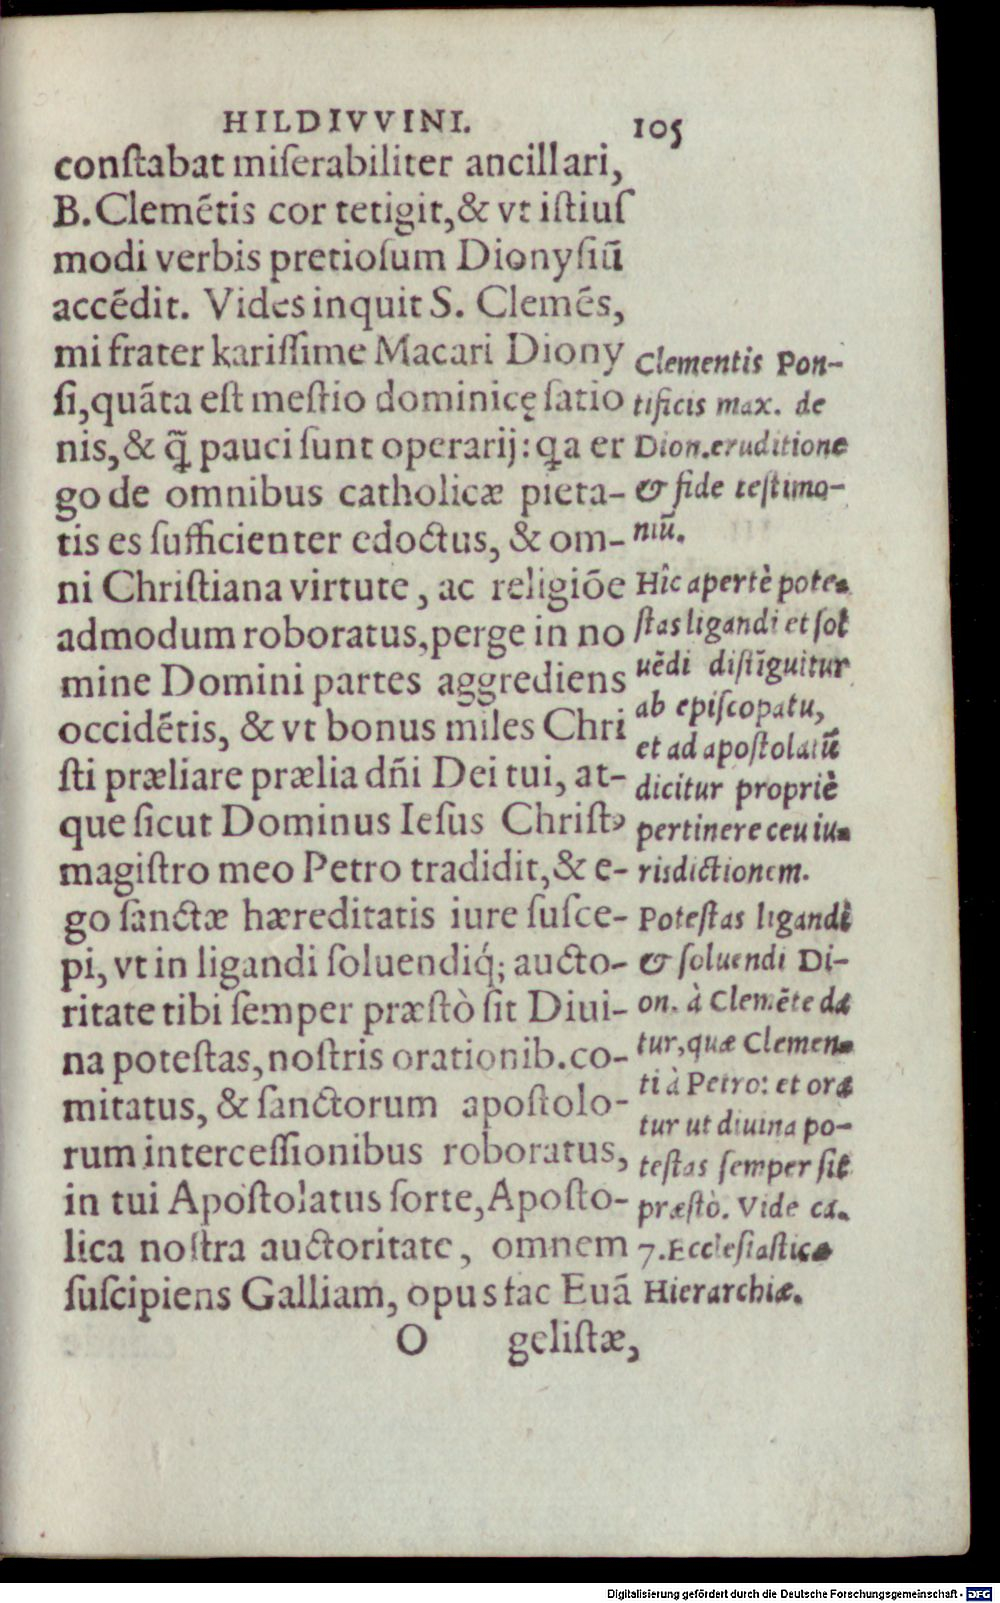 HILDIVVINI. 105
conſtabat miſerabiliter ancillari,
B. Clemētis cor tetigit, & vt iſtiuſ
modi verbis pretioſum Dionyſiū
accēdit. Vides inquit S. Clemēs,
mi frater kariſſime Macari Diony
ſi, quāta eſt meſtio dominicę ſatio
nis, & q̄̃ pauci ſunt operarij: ꝗa er
go de omnibus catholicæ pieta-
tis es ſufficienter edoctus, & om-
ni Chriſtiana virtute, ac religiōe
admodum roboratus, perge in no
mine Domini partes aggrediens
occidētis, & vt bonus miles Chri
ſti præliare prælia dñi Dei tui, at-
que ſicut Dominus Ieſus Chriſtꝰ
magiſtro meo Petro tradidit, & e-
go ſanctæ hæreditatis iure ſuſce-
pi, vt in ligandi ſoluendiq́; aucto-
ritate tibi ſemper præſtò ſit Diui-
na poteſtas, noſtris orationib. co-
mitatus, & ſanctorum apoſtolo-
rum interceſſionibus roboratus,
in tui Apoſtolatus ſorte, Apoſto-
lica noſtra auctoritate, omnem
ſuſcipiens Galliam, opus fac Euā
O geliſtæ,
Clementis Pon-
tificis max. de
Dion. eruditione
& fide teſtimo-
niū.
Hîc apertè pote-
ſtas ligandi et ſol
uēdi diſtīguitur
ab epiſcopatu,
et ad apoſtolatū
dicitur propriè
pertinere ceu iu-
risdictionem.
Poteſtas ligandi
& ſoluendi Di-
on. à Clemēte da
tur, quæ Clemen-
ti à Petro: et ora
tur ut diuina po-
teſtas ſemper ſit
præſtò. Vide ca.
7. Eccleſiaſticæ
Hierarchiæ.
Digitalisierung gefördert durch die Deutsche Forschungsgemeinschaft - DFG